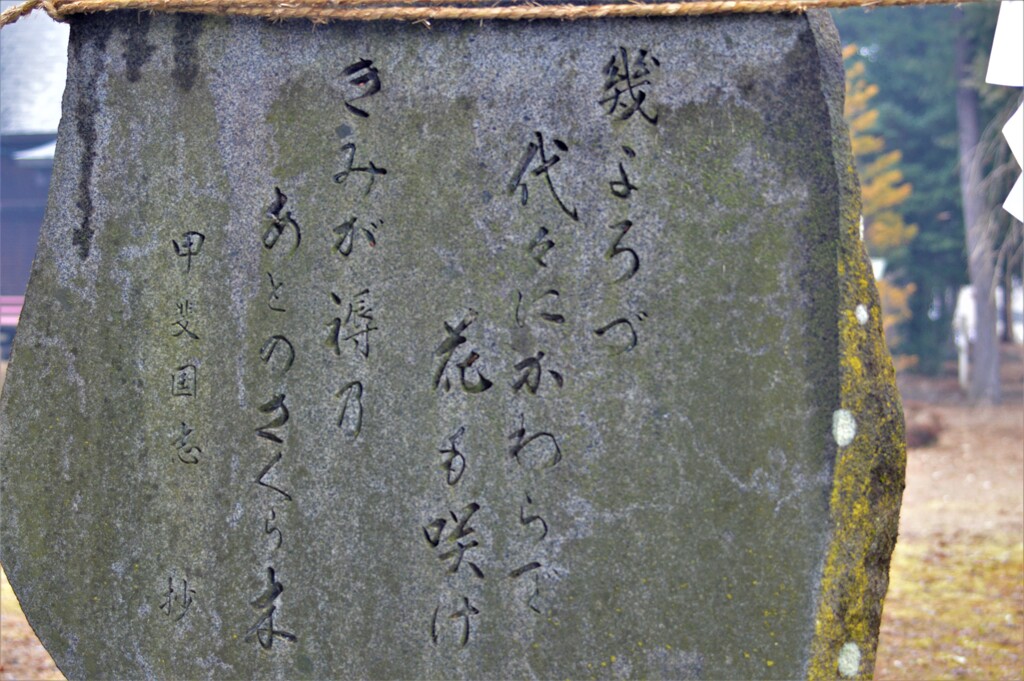 幾よろづ
代々にかわらで
花も咲け
きみが褥乃
あとのさくら木
甲斐国志 抄